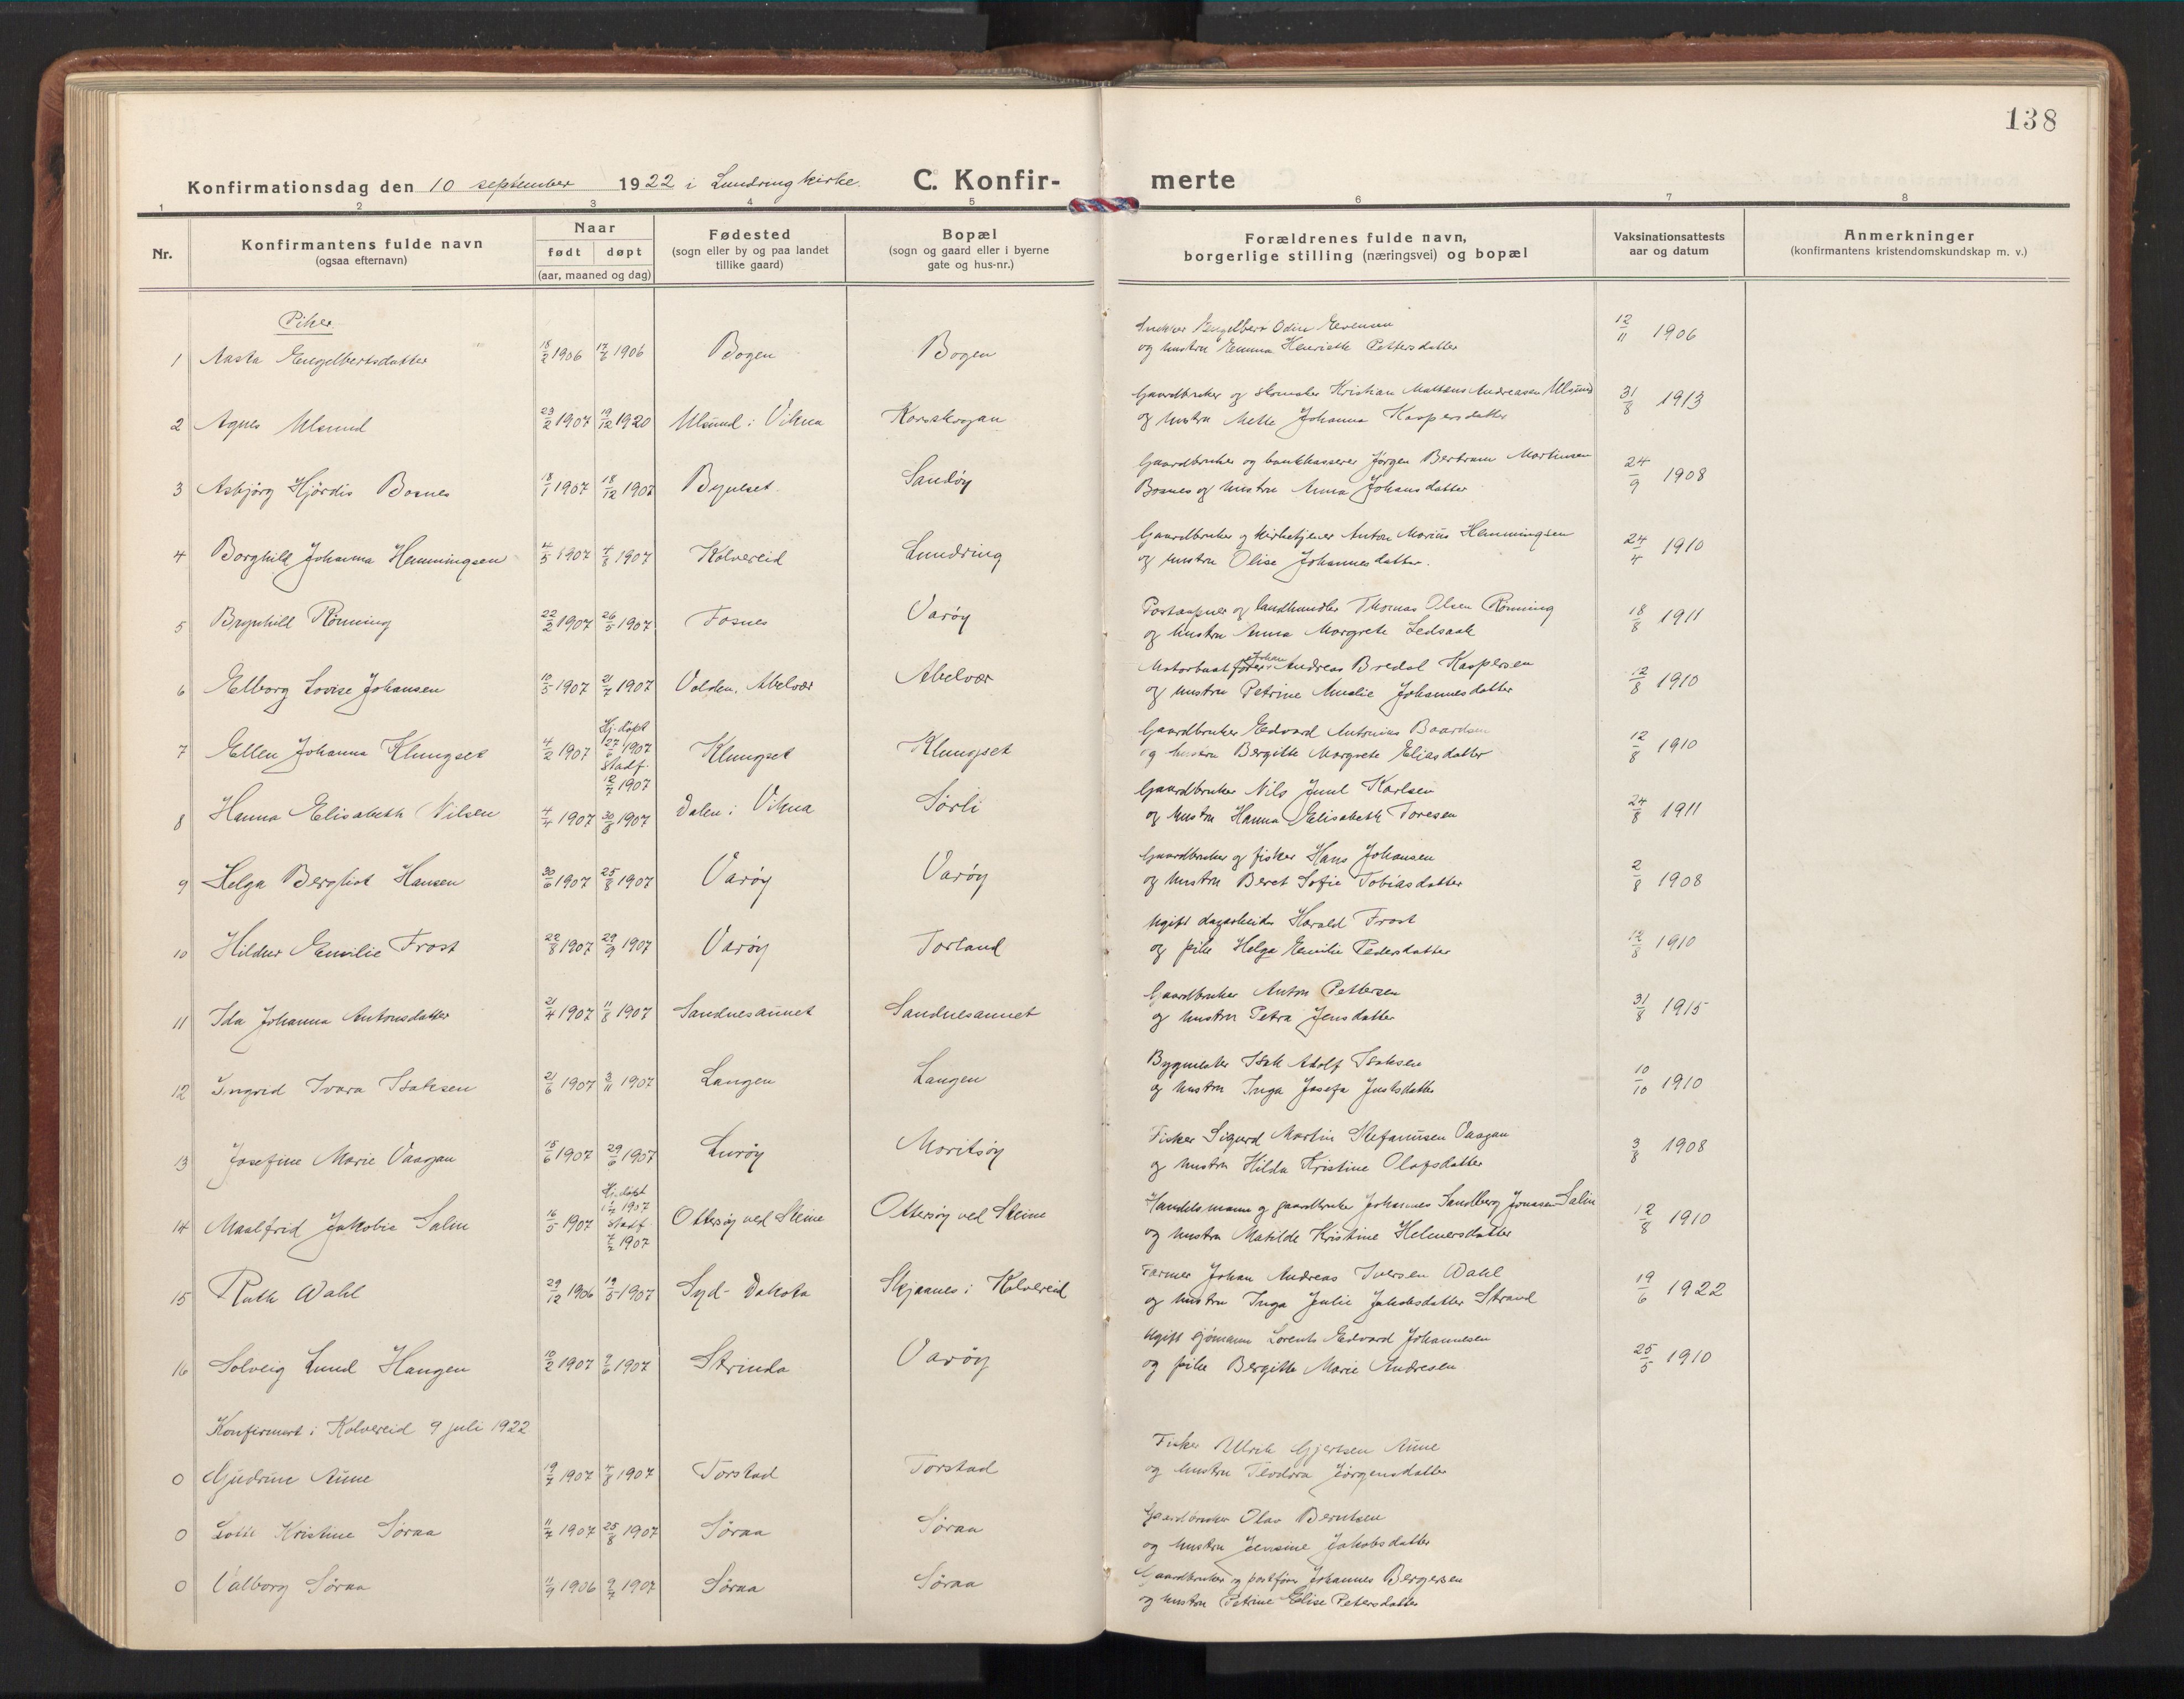 138
Konfirmationsdag den 10 september 1922 i Lundring kirke.
C. Konfir- merte
1 2 3 4 5 6 7 8
Nr.
Konfirmantens fulde navn
(ogsaa efternavn)
Naar
født døpt
(aar, maaned og dag)
Fødested
(sogn eller by og paa landet
tillike gaard)
Bopæl
(sogn og gaard eller i byerne
gate og hus-nr.)
Forældrenes fulde navn,
borgerlige stilling (næringsvei) og bopæl
Vaksinationsattests
aar og datum
Anmerkninger
(konfirmantens kristendomskundskap m. v.)
Piker
1 Aasta Engelbertsdatter 18/2 1906 17/6 1906 Bogen Bogen
Engelbert Odin Evensen
og hustru Emma Henriette Pettersdatter
12/11 1906
2 Agnes Ulsund 23/2 1907 19/12 1920 Ulsund i Vikna Korsskogan
Gaardbruker og skomaker Kristian Mattens Andreasen Ulsund
og hustru Mette Johanna Kaspersdatter
31/8 1913
3 Asbjörg Hjördis Bosnes 18/1 1907 18/12 1907 Byneset Sandöy
Gaardbruker og bankkasserer Jørgen Bertram Martinsen
Bosnes og hustru Anna Johansdatter
24/9 1908
4 Borghild Johanna Hemmingsen 4/5 1907 4/8 1907 Kolvereid Lundring
Gaardbruker og kirketjener Anton Marius Hemmingsen
og hustru Olise Johannesdatter.
24/4 1910
5 Brynhild Rönning 22/2 1907 26/5 1907 Fosnes Varöy
Postaapner og landhandler Thomas Olsen Rönning
og hustru Anna Margrete Ledsaak
18/8 1911
6 Elborg Lovise Johansen 10/5 1907 21/7 1907 Volden, Abelvær Abelvær
Motorbaatförer Johan Andreas Bredal Kaspersen
og hustru Petrine Amalie Johannesdatter
12/8 1910
7 Ellen Johanna Klungset 4/2 1907 Hj. döpt
27/6 1907
Stadf.
12/7 1907
Klungset Klungset
Gaardbruker Edvard Antonius Baardsen
og hustru Bergitte Margrete Eliasdatter
12/8 1910
8 Hanna Elisabeth Nilsen 4/4 1907 30/8 1907 Dalen i Vikna Sörli
Gaardbruker Nils Juul Karlsen
og hustru Hanna Elisabeth Toresen
24/8 1911
9 Helga Bergliot Hansen 30/6 1907 25/8 1907 Varöy Varöy
Gaardbruker og fisker Hans Johansen
og hustru Beret Sofie Tobiasdatter
2/8 1908
10 Hildur Emilie Frost 22/8 1907 29/9 1907 Varöy Torland
Ugift dagarbeider Harald Frost
og pike Helga Emilie Pedersdatter
12/8 1910
11 Ida Johanna Antonsdatter 21/4 1907 11/8 1907 Sandnesaunet Sandnesaunet
Gaardbruker Anton Pettersen
og hustru Petra Jensdatter
31/8 1915
12 Ingrid Ivara Isaksen 21/6 1907 3/11 1907 Langen Langen
Bygmester Isak Adolf Isaksen
og hustru Inga Josefa Justsdatter
10/10 1910
13 Josefine Marie Vaagan 15/6 1907 29/6 1907 Luröy Moritsöy
Fisker Sigurd Martin Stefanusen Vaagan
og hustru Hilda Kristine Olafsdatter
3/8 1908
14 Maalfrid Jakobie Salin 16/5 1907 Hj. döpt
1907
Stadf.
1907
Ottersöy ved Steine Ottersöy ved Steine
Handelsmann og gaardbruker Johannes Sandberg Jonassen Salin
og hustru Matilde Kristine Helmersdatter
12/8 1910
15 Ruth Wahl 29/12 1906 19/5 1907 Syd-Dakota Skjaanes i Kolvereid
Farmer Johan Andreas Iversen Wahl
og hustru Inga Julie Jakobsdatter Strand
19/6 1922
16 Solveig Lund Hangen 10/2 1907 9/6 1907 Strinda Varöy
Ugift sjömann Lorents Edvard Johannesen
og pike Bergitte Marie Andresen
25/5 1910
Konfirmert i Kolvereid 9 juli 1922
0 Gudrun Aune 19/7 1907 4/8 1907 Torstad Torstad
Fisker Ulrik Gjertsen Aune
og hustru Teodora Jörgensdatter
0 Lotte Kristine Söraa 11/7 1907 25/8 1907 Söraa Söraa
Gaardbruker Olav Berntsen
og hustru Jensine Jakobsdatter
0 Valborg Söraa 11/9 1906 9/7 1907 Söraa Söraa
Gaardbruker og postförer Johannes Bergersen
og hustru Petrine Elise Petersdatter